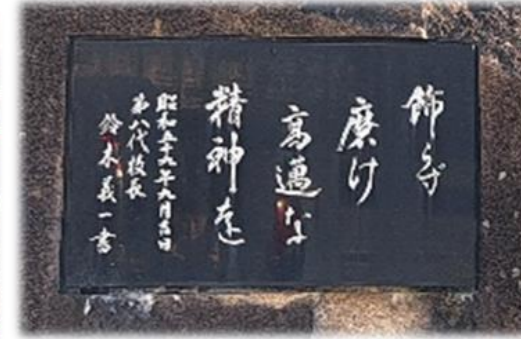 飾らず
磨け
高邁な
精神を
昭和五十九年九月吉日
第八代校長
鈴木義一書